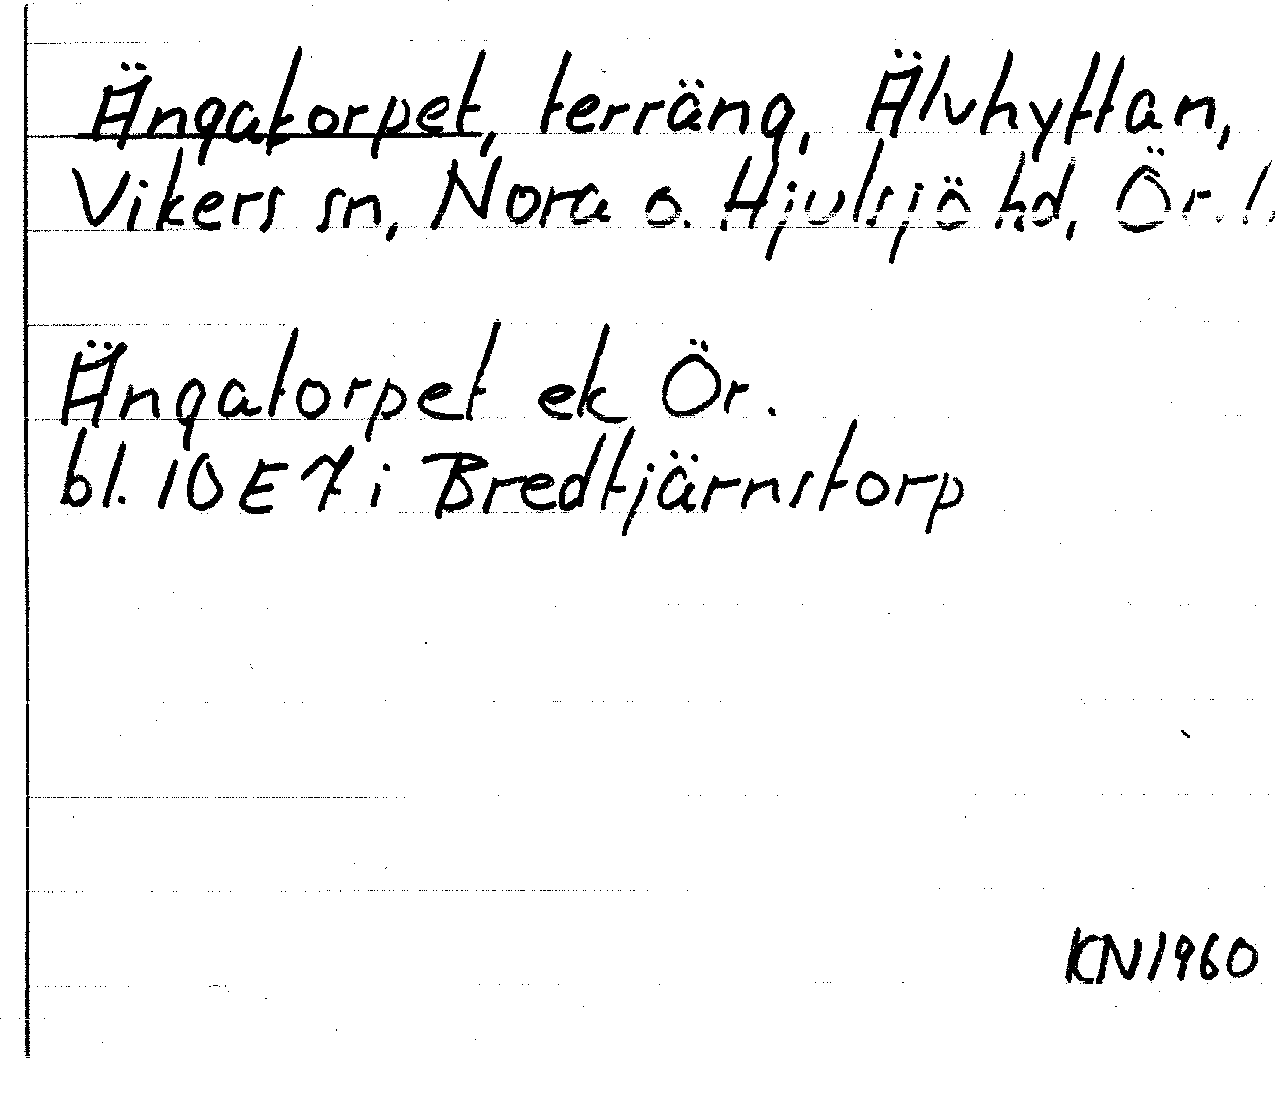 Ängatorpet, terräng, Älvhyttan,
Vikers sn, Nora o. Hjulsjö hd, Ör. l.
Ängatorpet ek Ör.
bl. 10 E 7 i Bredtjärnstorp
KN 1960